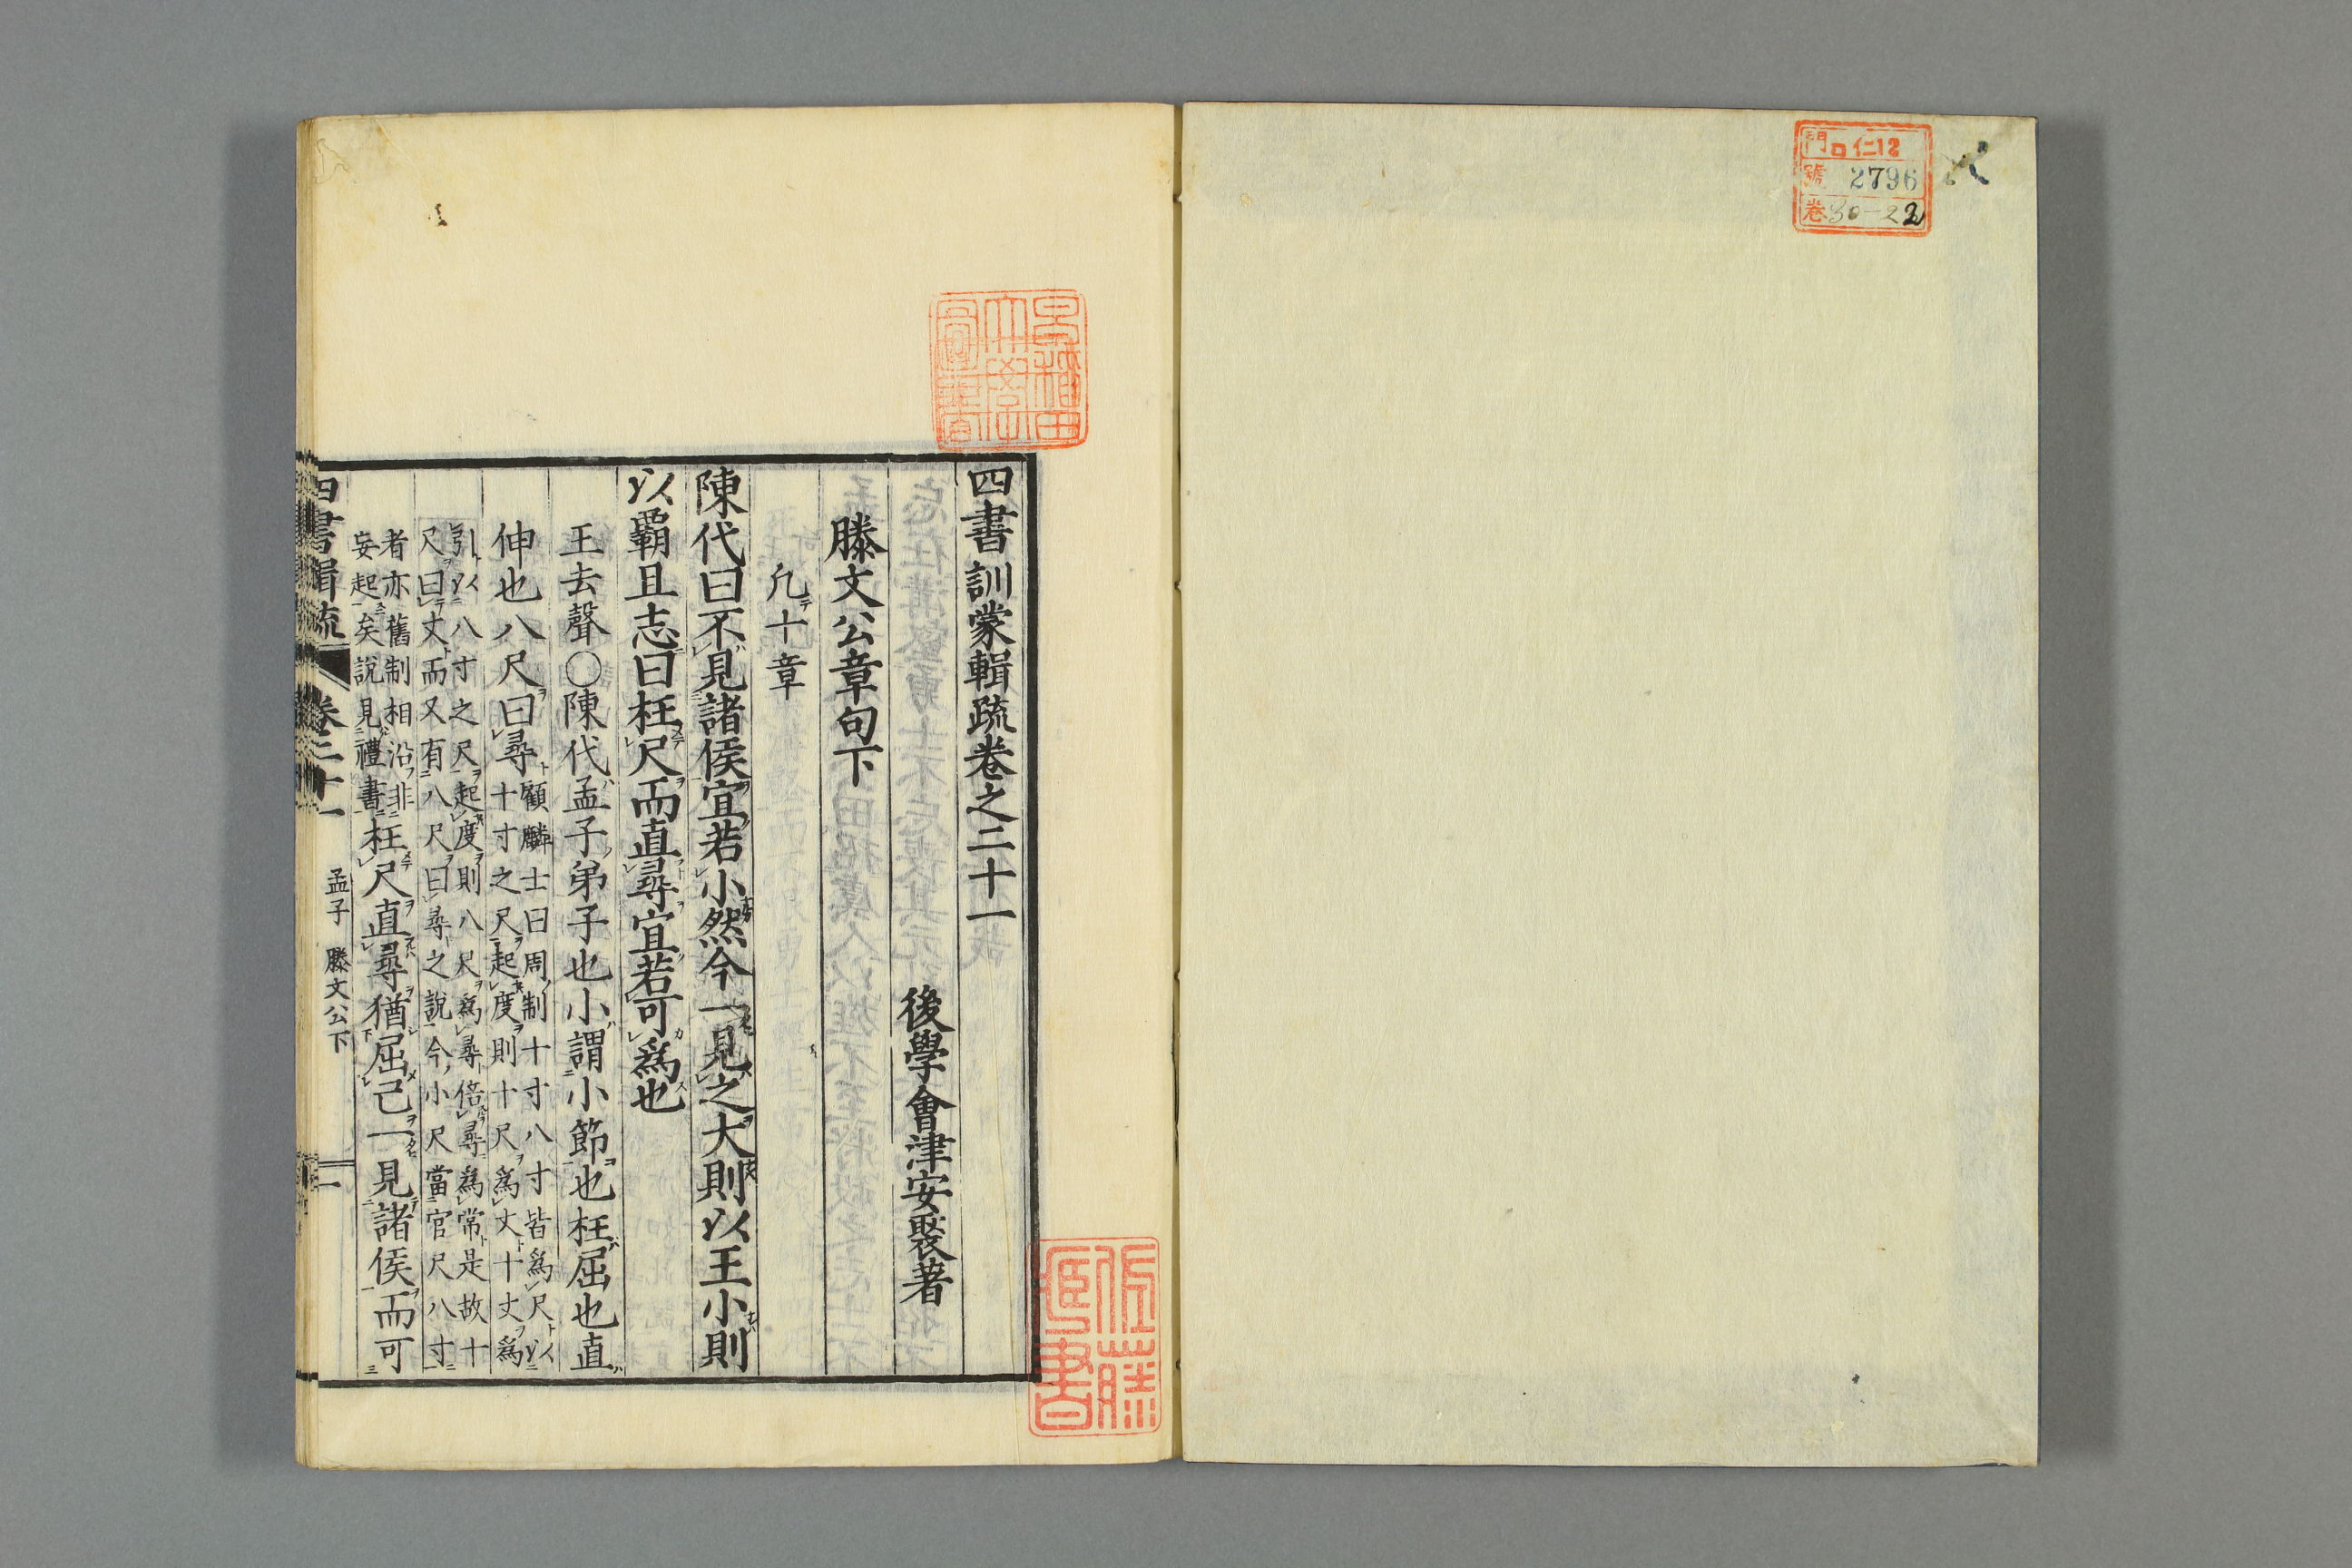 門 ロ 仁12
號 2796
卷 30-22
早稲田
大學
圖書
四書訓蒙輯疏卷之二十一
後學會津安褧著
滕文公章句下
凡十章
陳代曰不見諸侯宜若小然今一見之大則以王小則
以覇且志曰枉尺而直尋宜若可爲也
王去聲〇陳代孟子弟子也小謂小節也枉屈也直
伸也八尺曰尋顧麟士曰周制十寸八寸皆爲尺以
十寸之尺起度則十尺爲丈十丈爲
引以八寸之尺起度則八尺爲尋倍尋爲常是故十
尺曰丈而又有八尺曰尋之說今小尺當官尺八寸
者亦舊制相沿非
妄起矣說見禮書枉尺直尋猶屈己一見諸侯而可
四書輯疏 卷二十一 孟子 滕文公下 一
佐藤
書